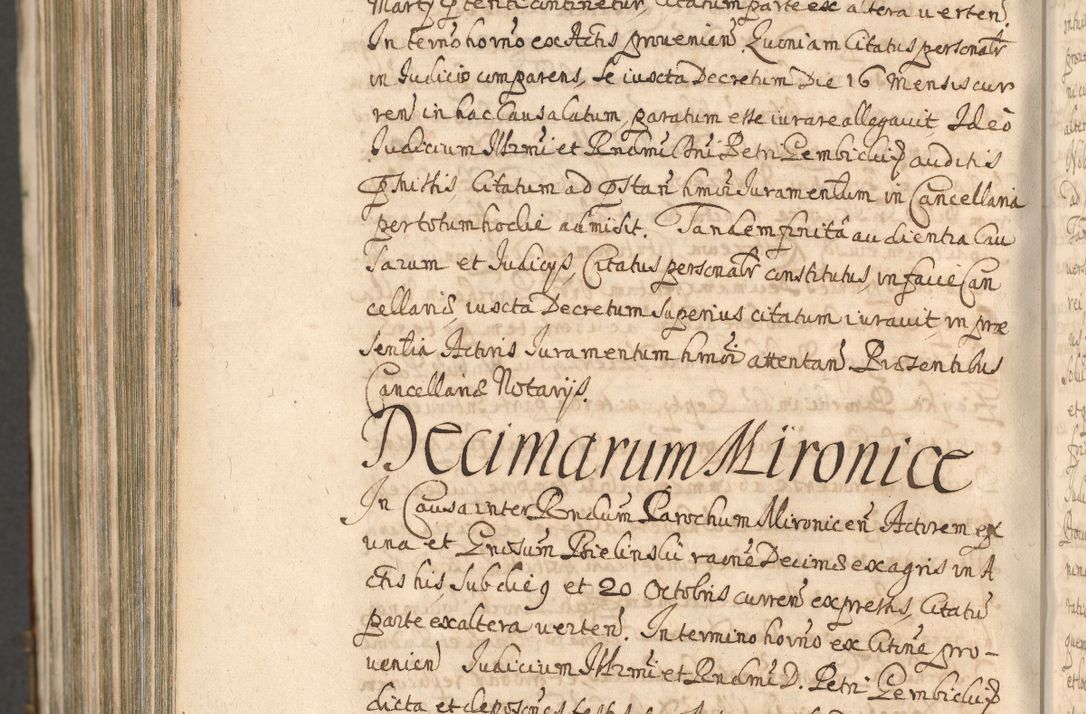 In term̃o horñ ex Actis provenieñ. Quoniam Citatus personalr̃
in Judicio comparens, se iuxta Decretum Die 16 Mensis cur
reñ in hac Causa latum, paratum esse iurare allegavit, Ideo
Judicium Illr̃mi et Rndmi Dni Petri Gembicki auditis
Citatum ad hm̃oi Juramentum in Cancellaria
per totum hodie admisit. Tandem finita audientia Cau
sarum et Judicijs, Citatus personalr̃ constitutus, in facie Can
cellariæ iuxta Decretum superius citatum iuravit in præ
sentia Actoris Juramentum hm̃oi attentañ Præsentibus
Cancellariæ Notarijs.
Decimarum Mironice
In Causa inter Rndum Parochum Mironiceñ Actorem ex
una et Gnosum Bielinski raõne Decimæ ex agris in A
ctis his, sub die 9 et 20 Octobris curreñ expressis, Citatũ
parte ex altera verteñ. In termino horñ ex Citñe pro-
venieñ Judicium Illr̃mi et Rndmi D. Petri Gembicki
dicta et